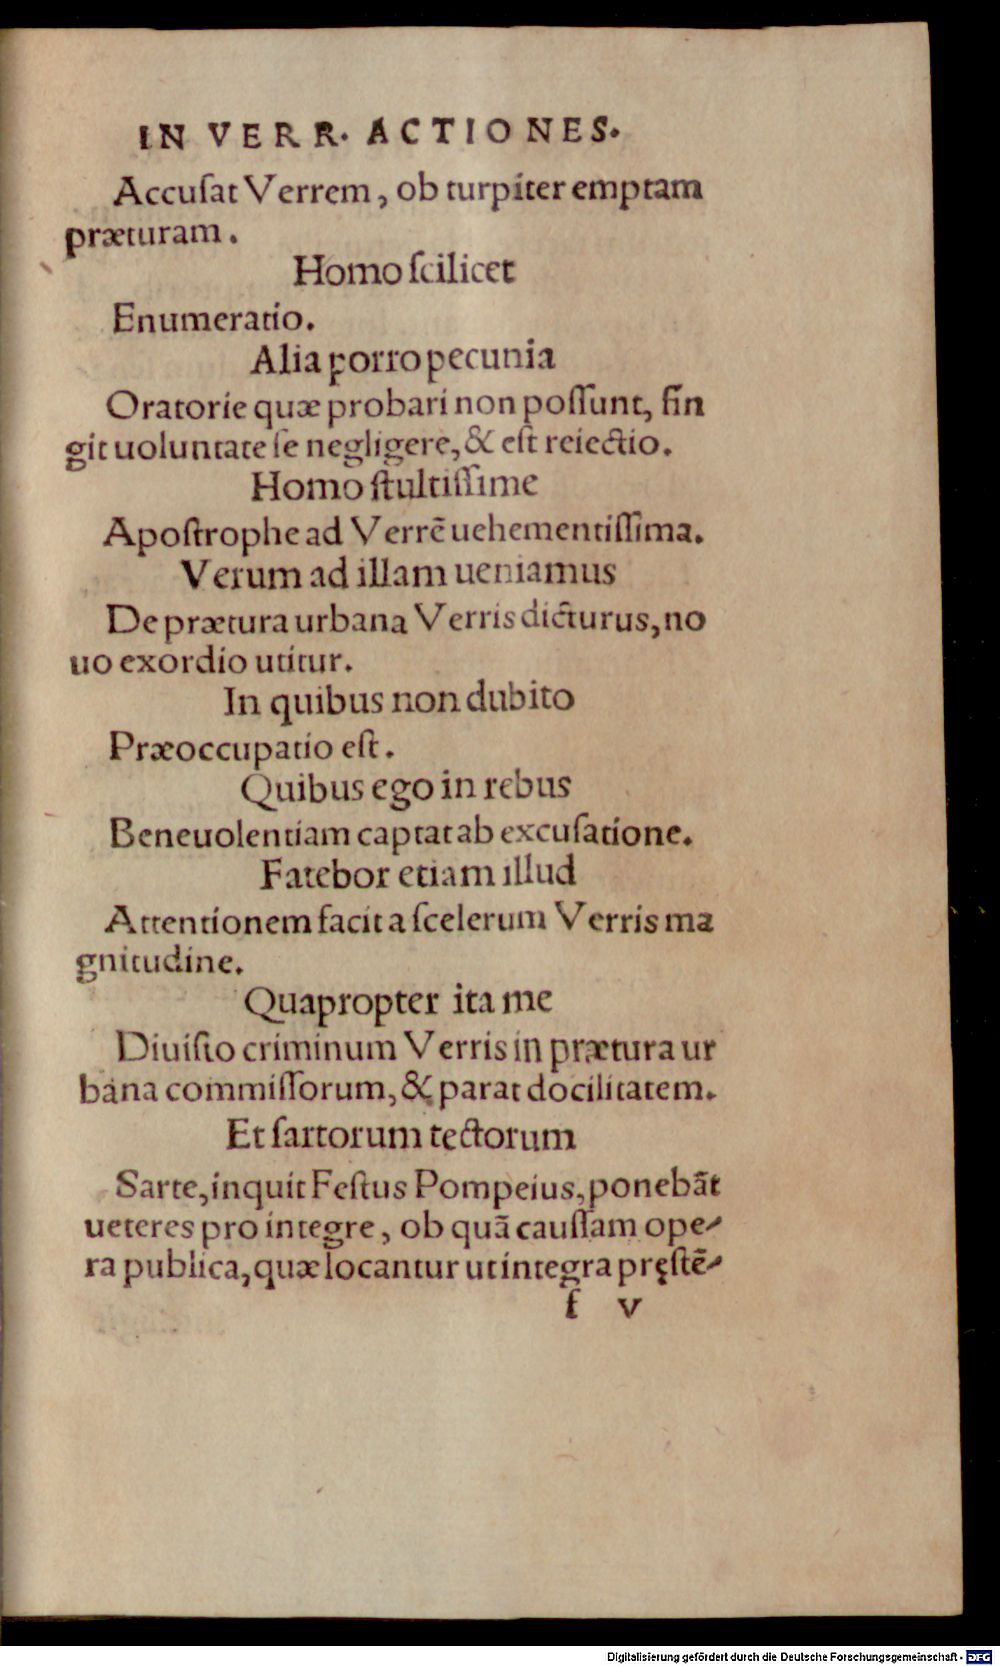 IN VERR. ACTIONES.
Accuſat Verrem, ob turpiter emptam
præturam.
Homo ſcilicet
Enumeratio.
Alia porro pecunia
Oratorie quæ probari non poſſunt, fin
git uoluntate ſe negligere, & eſt reiectio.
Homo ſtultiſſime
Apoſtrophe ad Verrē uehementiſſima.
Verum ad illam ueniamus
De prætura urbana Verris dicturus, no
uo exordio utitur.
In quibus non dubito
Præoccupatio eſt.
Quibus ego in rebus
Beneuolentiam captat ab excuſatione.
Fatebor etiam illud
Attentionem facit a ſcelerum Verris ma
gnitudine.
Quapropter ita me
Diuiſio criminum Verris in prætura ur
bana commiſſorum, & parat docilitatem.
Et ſartorum tectorum
Sarte, inquit Feſtus Pompeius, ponebāt
ueteres pro integre, ob quā cauſſam ope-
ra publica, quæ locantur ut integra pręſtē-
f v
Digitalisierung gefördert durch die Deutsche Forschungsgemeinschaft - DFG